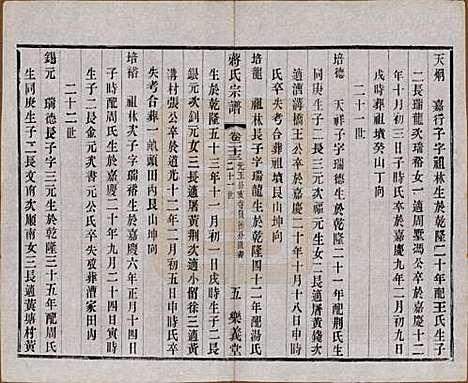 天烱 嘉行子字祖林生於乾隆二十年配王氏生子
二長瑞龍次瑞裕女一適周墅馮公卒於嘉慶十二
年十月初三日子時氏卒於嘉慶九年二月初九日
戌時葬祖墳癸山丁向
二十一世
培德 天祥子字瑞德生於乾隆二十一年配荆氏生
子二長福元次福元生女二長適屠黃錢次
適清溝橋王公卒於嘉慶十年十月十八日申時氏
失考合葬祖墳艮山坤向
培龍 祖林長子字瑞龍生於乾隆四十二年配湯氏
蔣氏宗譜
卷之三
二十一世
五 樂義堂
生於乾隆五十三年十一月初一日戌時生子二長
銀元次玉元生女三長適屠黃荆次適衖口
溝村張公卒於道光十二年二月初五日申時氏卒
失考合葬一畝頭田內艮山坤向
培裕 祖林次子字瑞裕生於嘉慶六年正月十四日
子時配周氏生於嘉慶二十年九月二十四日寅時
生子二長金元次書元公氏卒失攷葬漕家田內
二十二世
錫元 瑞德長子生於乾隆三十五年配周氏
生同庚生子二長文南次順南女三長適黃塘村黃